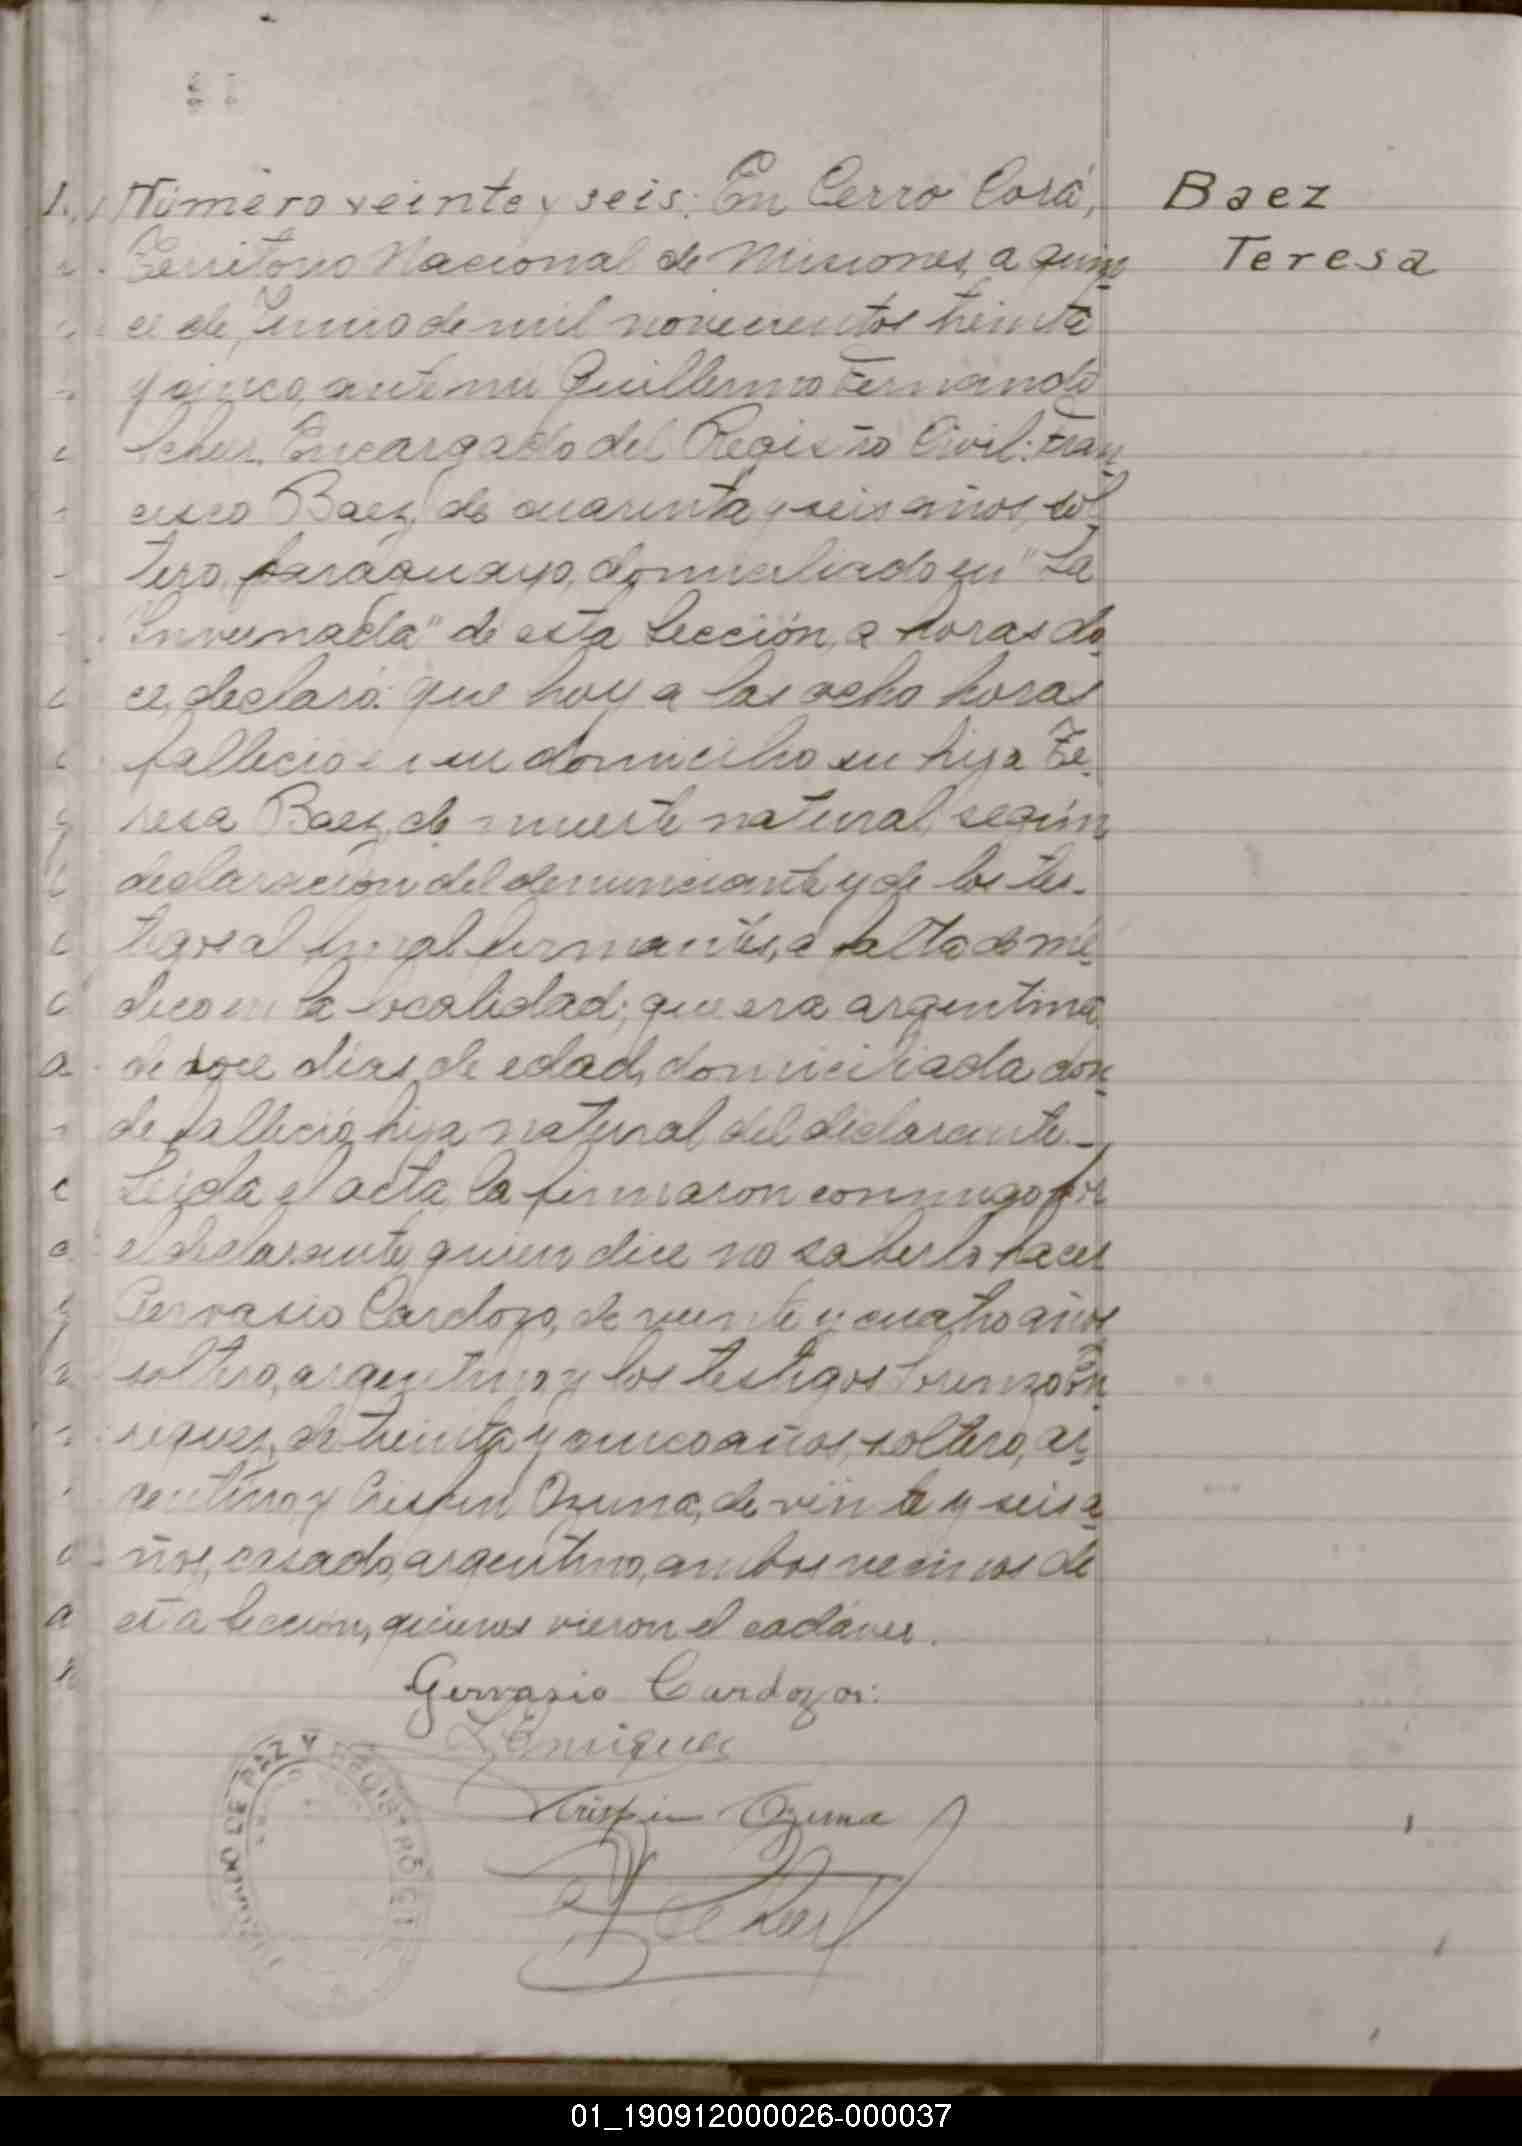 Número veinte y seis: En Cerro Corá,
Baez
Teresa
Territorio Nacional de Misiones, a quin-
ce de Junio de mil novecientos treinta
y cinco, ante mi Guillermo Fernando
Scherf, Encargado del Registro Civil: Fran-
cisco Baez, de cuarenta y seis años, sol-
tero, paraguayo, domiciliado en "La
Invernada" de esta Sección, a horas do-
ce, declaró: que hoy a las ocho horas
falleció en su domicilio su hija Te-
resa Baez, de muerte natural, según
declaración del denunciante y de los tes-
tigos al final firmantes, a falta de mé-
dico en la localidad; que era argentina
de doce dias de edad, domiciliada don-
de falleció, hija natural del declarante.-
Leida el acta, la firmaron conmigo por
el declarante quien dice no saberlo hacer
Gervasio Cardozo, de veinte y cuatro años
soltero, argentino y los testigos Lorenzo En-
riquez, de treinta y cinco años, soltero, ar-
gentino y Crispin Ozuna, de vinte y seis a-
ños, casado, argentino, ambos vecinos de
esta Sección, quienes vieron el cadáver.
Gervasio Cardozo
L Enriquez
Krispin Ozuna
JUZGADO DE PAZ Y REGISTRO CI
01_190912000026-000037